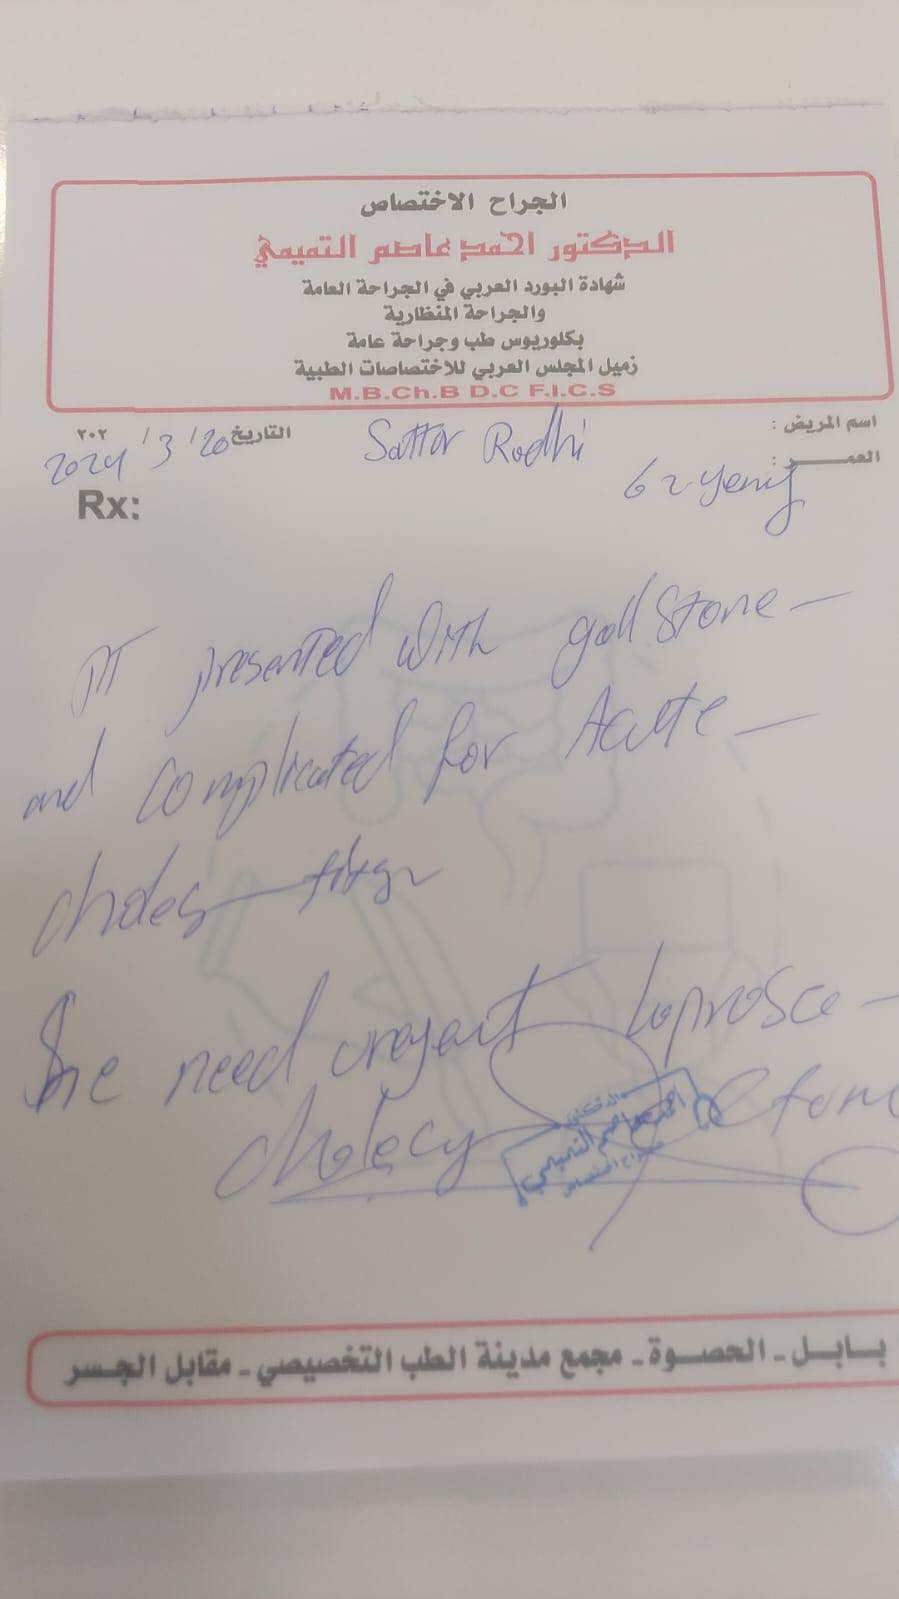 الجراح الاختصاص
الدكتور احمد عاصم التميمي
شهادة البورد العربي في الجراحة العامة
والجراحة المنظارية
بكلوريوس طب وجراحة عامة
زميل المجلس العربي للاختصاصات الطبية
M.B.Ch.B D.C F.I.C.S
اسم المريض :
Sattar Radhi
التاريخ / / ٢٠٢
2024 3 20
العمـــر :
62 years
Rx:
PT presented with gall stone
and complicated for Acute
She need urgent
بـابـل ـ الحصـوة ـ مجمع مدينة الطب التخصيصي ـ مقابل الجسر